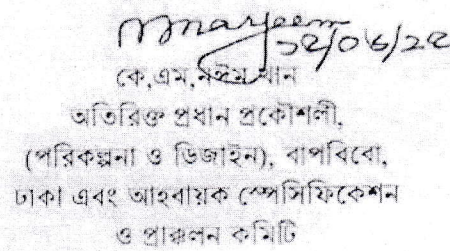 ১২/০৬/২২
কে,এম,নঈম খান
অতিরিক্ত প্রধান প্রকৌশলী,
(পরিকল্পনা ও ডিজাইন), বাপবিবো,
ঢাকা এবং আহবায়ক স্পেসিফিকেশন
ও প্রাক্কলন কমিটি